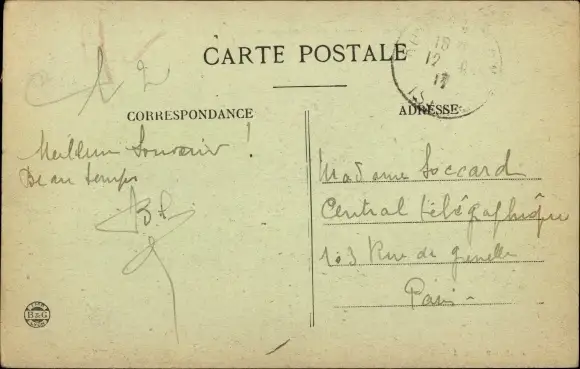 CARTE POSTALE
CORRESPONDANCE
ADRESSE
Meilleur Souvenir !
Beau temps
Madame Soccard
Central Télégraphique
103 Rue de Grenelle
Paris
B&G